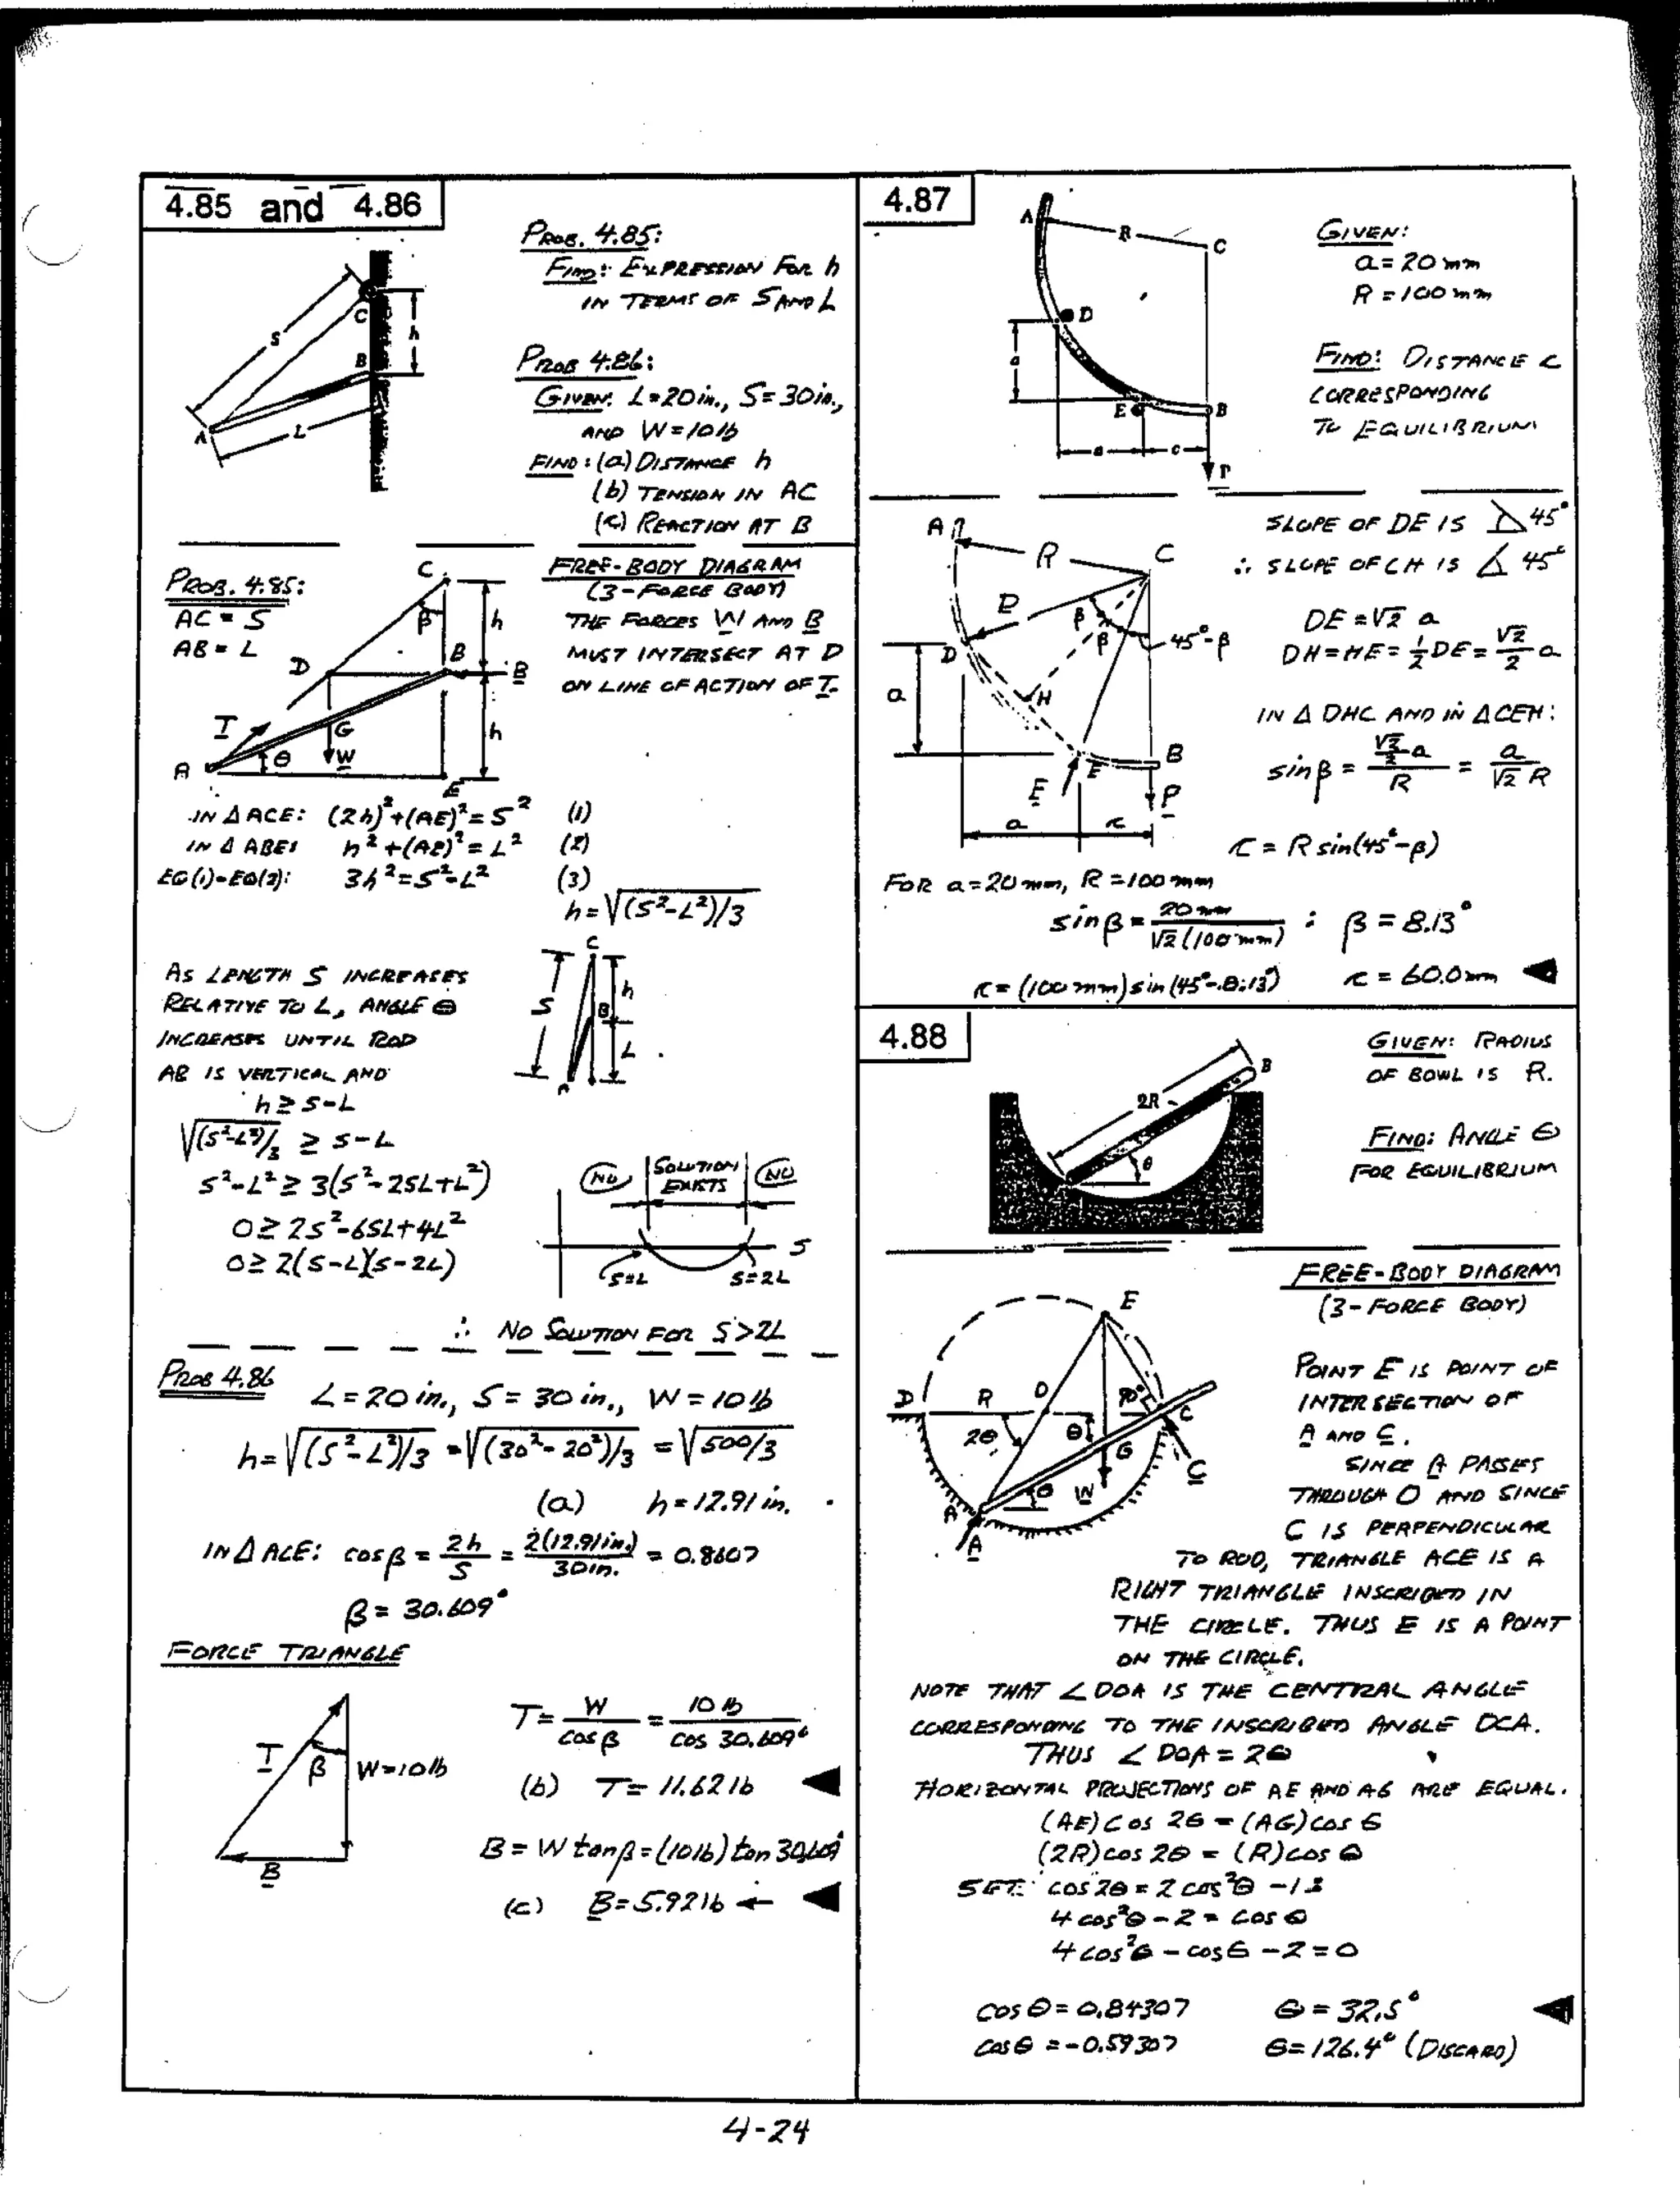 4.85 and 4.86
PROB. 4.85:
FIND: EXPRESSION FOR h
IN TERMS OF S AND L
PROB 4.86:
GIVEN: L=20in., S=30in.,
AND W=10lb
FIND: (a) DISTANCE h
(b) TENSION IN AC
(c) REACTION AT B
S
C
h
B
A
L
PROB. 4.85:
AC = S
AB = L
FREE-BODY DIAGRAM
(3-FORCE BODY)
THE FORCES W AND B
MUST INTERSECT AT D
ON LINE OF ACTION OF T.
C
β
h
D
B
B
T
G
h
A
θ
W
E
IN Δ ACE: (2h)²+(AE)²=S² (1)
IN Δ ABE: h²+(AE)²=L² (2)
EQ(1)-EQ(2): 3h²=S²-L² (3)
h=√(S²-L²)/3
AS LENGTH S INCREASES
RELATIVE TO L, ANGLE θ
INCREASES UNTIL ROD
AB IS VERTICAL AND
h≥S-L
√(S²-L²)/3 ≥ S-L
S²-L² ≥ 3(S²-2SL+L²)
0≥2S²-6SL+4L²
0≥2(S-L)(S-2L)
C
S
h
B
L
A
NO
SOLUTION
EXISTS
NO
S
S=L
S=2L
∴ NO SOLUTION FOR S>2L
PROB 4.86
L=20in., S=30in., W=10lb
h=√(S²-L²)/3 =√(30²-20²)/3 =√500/3
(a) h=12.91in.
IN Δ ACE: cosβ = 2h/S = 2(12.91in.)/30in. = 0.8607
β=30.609°
FORCE TRIANGLE
T
β
W=10lb
B
T= W/cosβ = 10lb/cos 30.609°
(b) T=11.62lb
B=W tanβ=(10lb)tan30.609°
(c) B=5.92lb ←
4.87
A
R
C
D
a
E
B
a
c
P
GIVEN:
a=20mm
R=100mm
FIND: DISTANCE c
CORRESPONDING
TO EQUILIBRIUM
SLOPE OF DE IS 45°
∴ SLOPE OF CH IS 45°
A
R
C
D
β
β
45°-β
D
H
a
B
E
E
P
a
c
DE=√2 a
DH=HE=½DE=√2/2 a
IN Δ DHC AND IN ΔCEH:
sinβ = (√2/2 a)/R = a/(√2 R)
c = R sin(45°-β)
FOR a=20mm, R=100mm
sinβ= 20mm/(√2(100mm)) : β=8.13°
c=(100mm)sin(45°-8.13°) c=60.0mm
4.88
B
2R
θ
GIVEN: RADIUS
OF BOWL IS R.
FIND: ANGLE θ
FOR EQUILIBRIUM
FREE-BODY DIAGRAM
(3-FORCE BODY)
E
D
R
O
90°
C
2θ
θ
G
C
A
θ
W
A
POINT E IS POINT OF
INTERSECTION OF
A AND C.
SINCE A PASSES
THROUGH O AND SINCE
C IS PERPENDICULAR
TO ROD, TRIANGLE ACE IS A
RIGHT TRIANGLE INSCRIBED IN
THE CIRCLE. THUS E IS A POINT
ON THE CIRCLE.
NOTE THAT ∠DOA IS THE CENTRAL ANGLE
CORRESPONDING TO THE INSCRIBED ANGLE DCA.
THUS ∠DOA=2θ
HORIZONTAL PROJECTIONS OF AE AND AG ARE EQUAL.
(AE)cos 2θ = (AG)cos θ
(2R)cos 2θ = (R)cos θ
SET: cos2θ=2cos²θ-1:
4cos²θ-2=cosθ
4cos²θ-cosθ-2=0
cosθ=0.84307 θ=32.5°
cosθ=-0.59307 θ=126.4° (DISCARD)
4-24